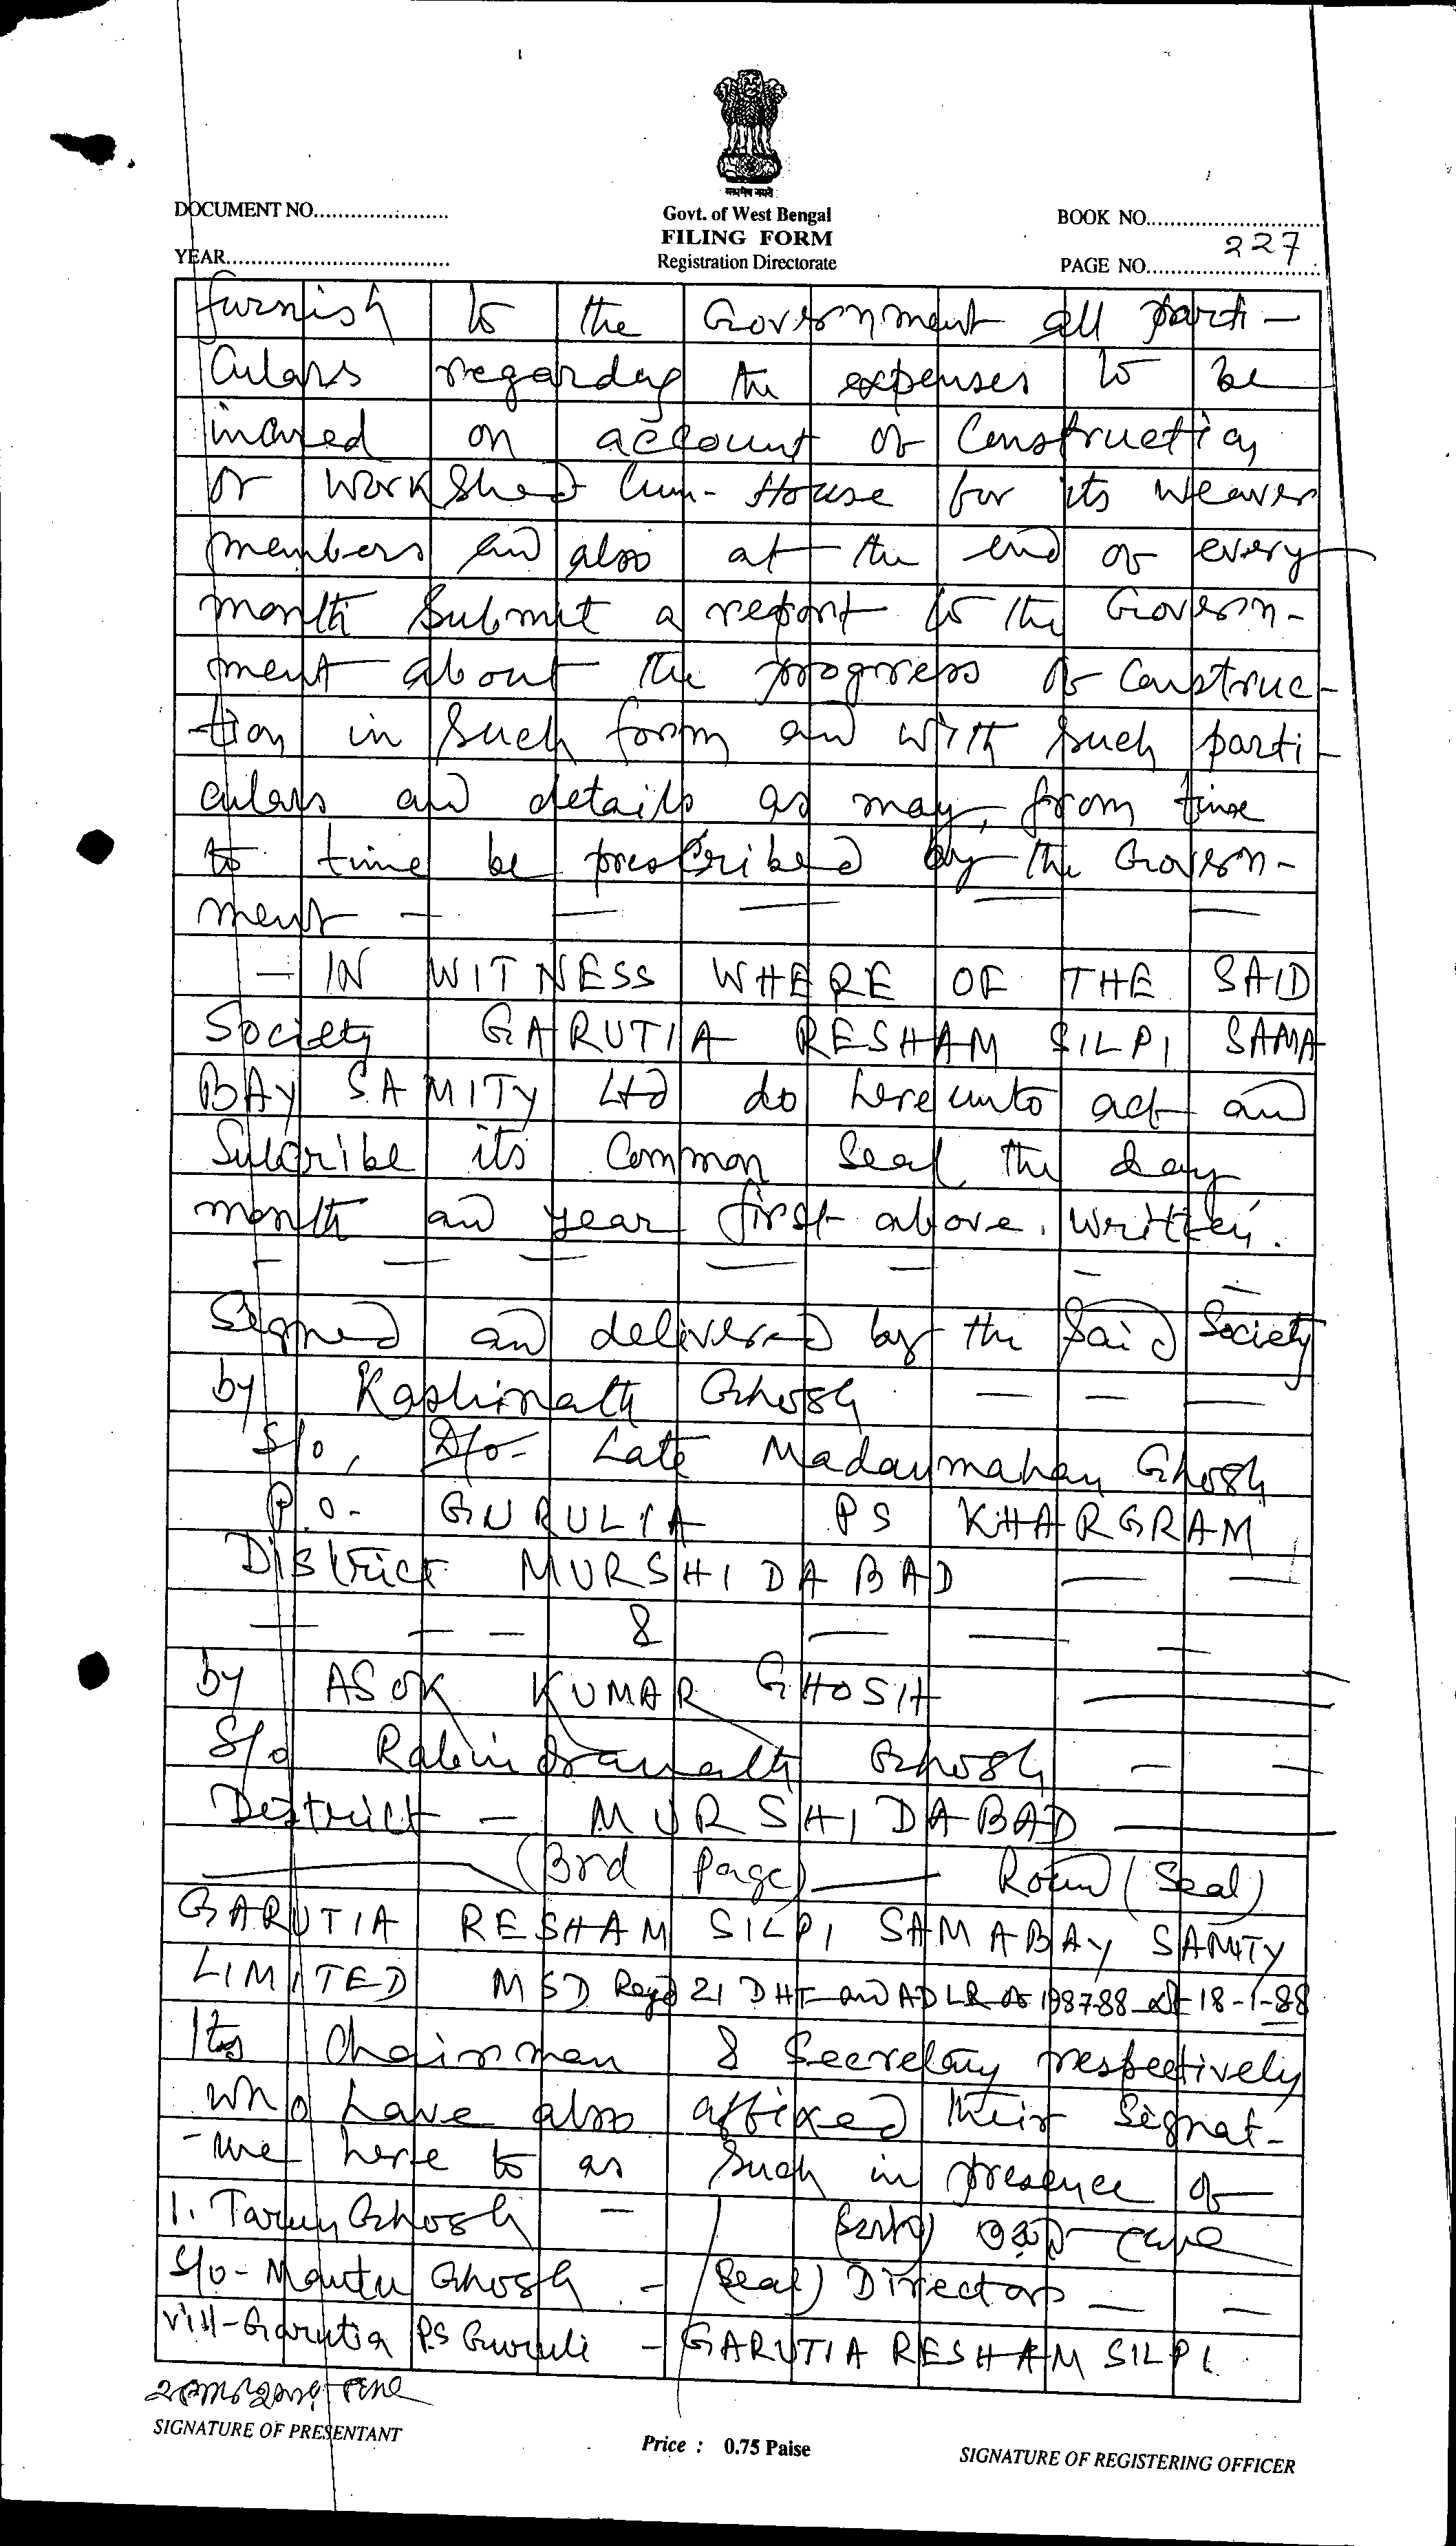 सत्यमेव जयते
DOCUMENT NO.......................
Govt. of West Bengal
BOOK NO.............................
FILING FORM
YEAR.....................................
Registration Directorate
PAGE NO............................. 227
furnish to the Government all parti-
culars regarding the expenses to be
incured on account of Construction
of Workshed Cum-House for its weaver
members and also at the end of every
month Submit a report to the Govern-
ment about the progress of Construc-
-tion in Such form and with such parti-
culars and details as may, from time
to time be prescribed by the Govern-
ment — — — — —
— IN WITNESS WHERE OF THE SAID
Society GARUTIA RESHAM SILPI SAMA
BAY SAMITY Ltd do hereunto act and
Subcribe its Common Seal the day
month and year first above. written.
— — — — — — —
Signed and delivered by the Said Society
by Kashinath Ghosh — — —
S/o, D/o- Late Madanmahan Ghosh
P.O- GURULIA PS KHARGRAM
District MURSHIDABAD — —
— — — & — — —
by ASOK KUMAR GHOSH —
S/o Rabindranath Ghosh — —
District — MURSHIDABAD —
— (3rd Page) — Round (Seal)
GARUTIA RESHAM SILPI SAMABAY SAMITY
LIMITED MSD Regd 21 DHT and ADLR of 1987-88 dt 18-1-88
Its Chairman & Secretary respectively
who have also affixed their Signat-
-ure here to as Such in presence of
1. Tarun Ghosh —
S/o- Mantu Ghosh - (Seal) Director — —
Vill-Garutia P.S Guruli - GARUTIA RESHAM SILPI
SIGNATURE OF PRESENTANT
Price : 0.75 Paise
SIGNATURE OF REGISTERING OFFICER